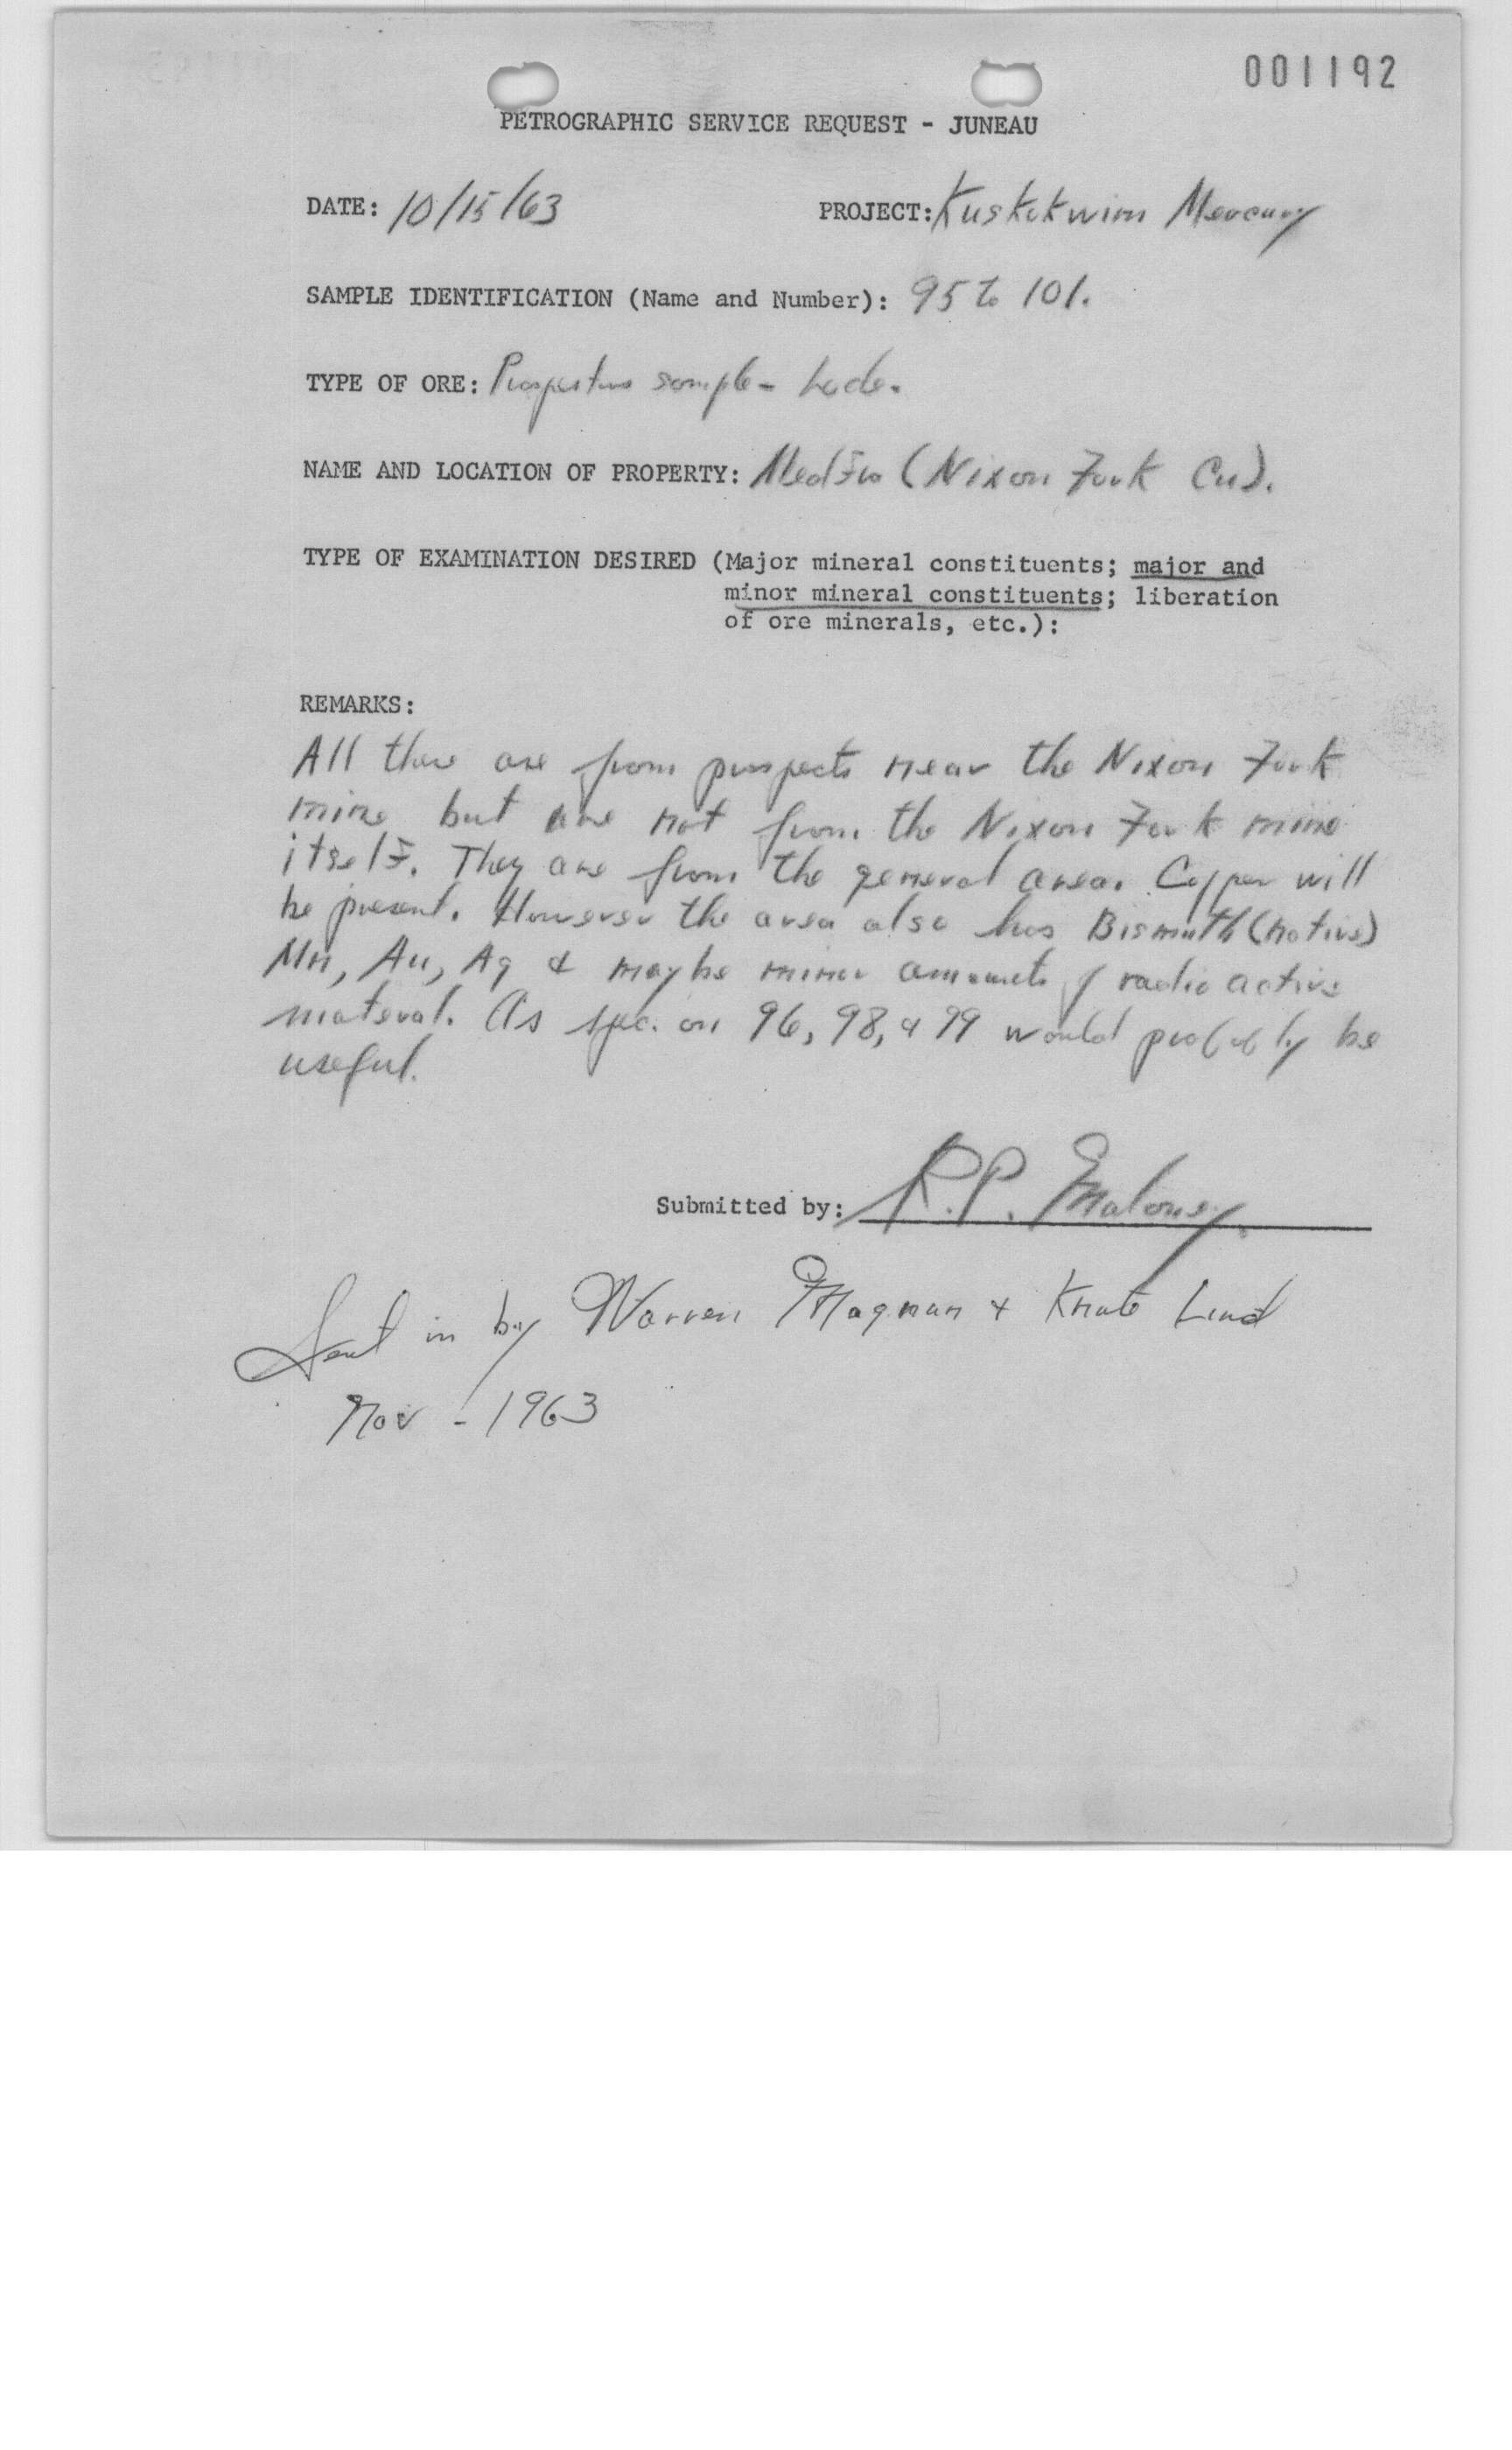 001192
PETROGRAPHIC SERVICE REQUEST - JUNEAU
DATE: 10/15/63 PROJECT: Kuskokwim Mercury
SAMPLE IDENTIFICATION (Name and Number): 95 to 101.
TYPE OF ORE: sample - Lode.
NAME AND LOCATION OF PROPERTY: Medfra (Nixon Fork Cu).
TYPE OF EXAMINATION DESIRED (Major mineral constituents; major and
minor mineral constituents; liberation
of ore minerals, etc.):
REMARKS:
All these are from prospects near the Nixon Fork
mine but are not from the Nixon Fork mine
itself. They are from the general area. Copper will
be present. However the area also has Bismuth (native)
Mn, Au, Ag & maybe minor amounts of radio active
material. A spec. on 96, 98, & 99 would probably be
useful.
Submitted by: R.P. Maloney
Sent in by Warren Magnuson & Knute Lind
Nov - 1963